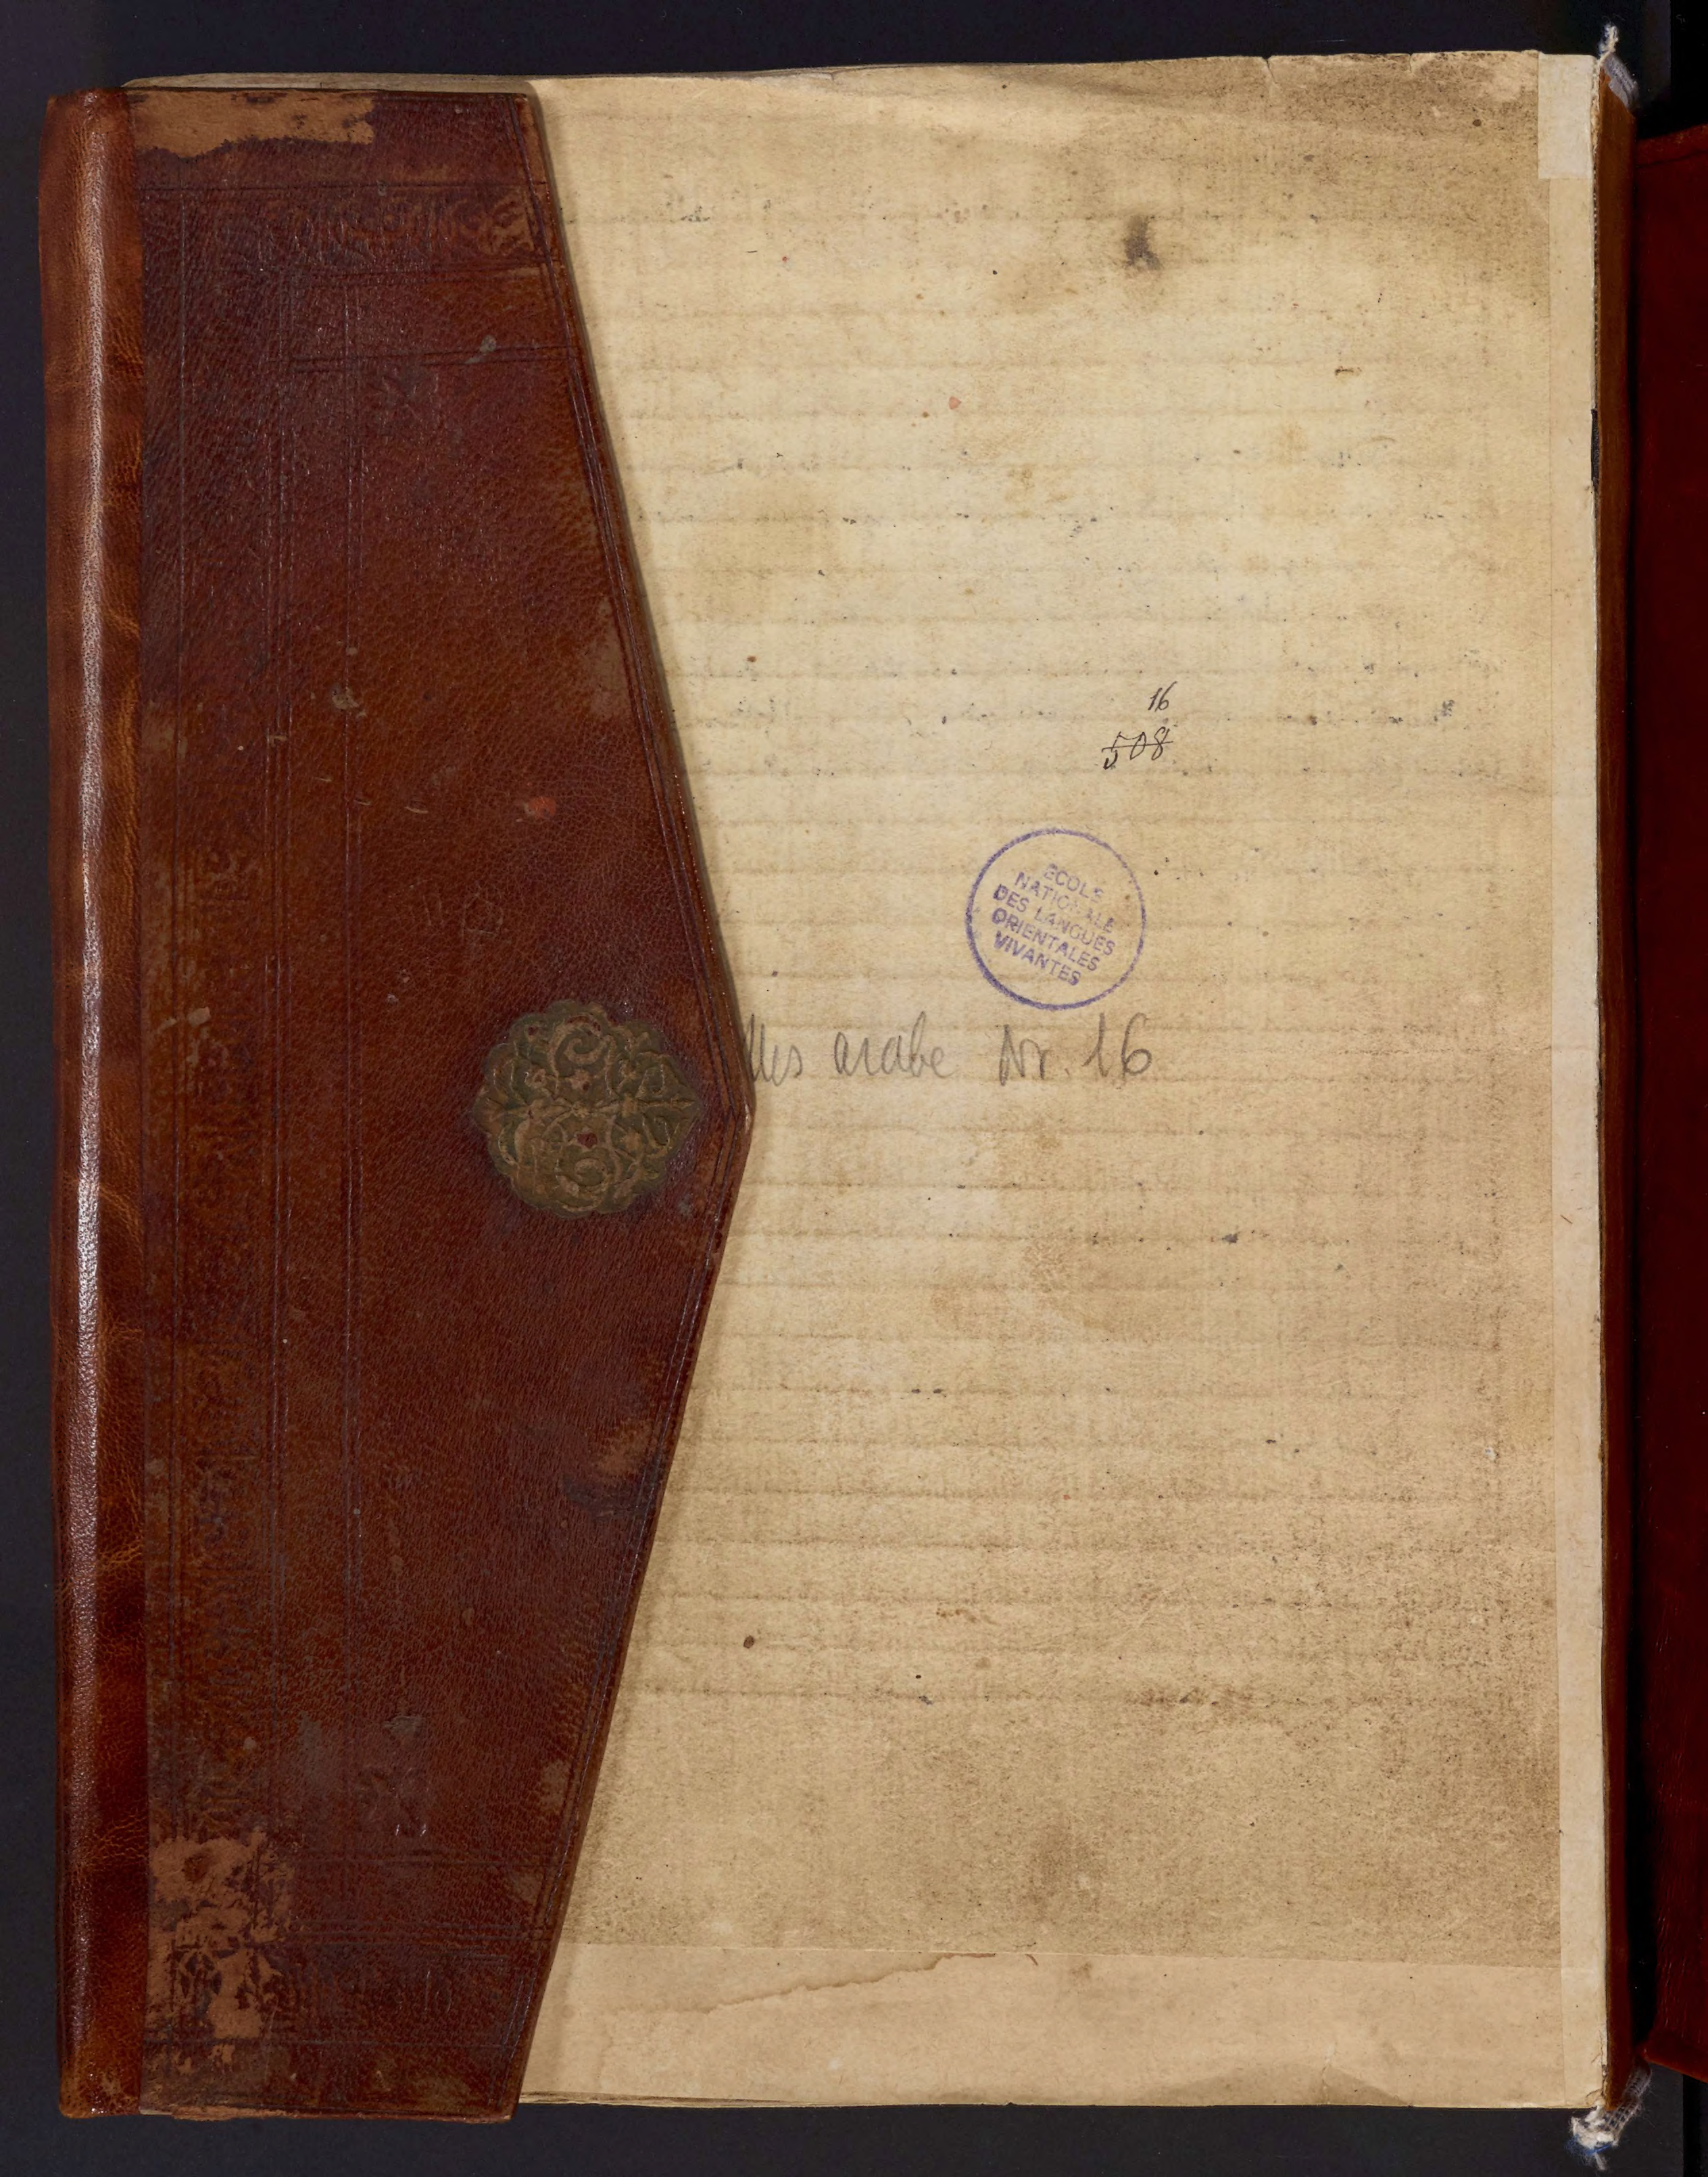 16
508
ECOLE
NATIONALE
DES LANGUES
ORIENTALES
VIVANTES
Mss arabe Nr. 16